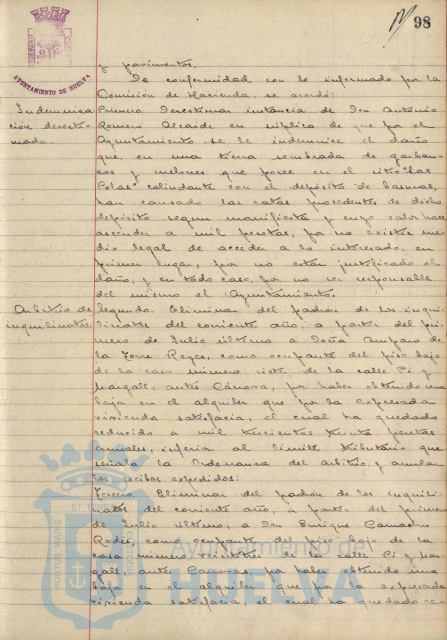 98
AYUNTAMIENTO DE HUELVA
y pavimentos.
De conformidad con lo informado por la
Comisión de Hacienda, se acordó:
Indemniza
ción desesti-
mada.
Primero. Desestimar instancia de Don Antonio
Romero Alcaide en súplica de que por el
Ayuntamiento se le indemnice el daño
que, en una tierra sembrada de garban-
zos y melones que posee en el sitio "Las
Colas" colindante con el depósito de basuras,
han causado las ratas procedentes de dicho
depósito segun manifiesta y cuyo valor hace
ascender a mil pesetas, por no existir me
dio legal de acceder a lo interesado, en
primer lugar, por no estar justificado el
daño, y en todo caso, por no ser responsable
del mismo el Ayuntamiento.
Arbitrio de
inquilinatos.
Segundo. Eliminar del padrón de los inqui-
linatos del corriente año, a partir del pri-
mero de Julio último a Doña Amparo de
la Torre Reyes, como ocupante del piso bajo
de la casa número siete, de la calle Pi y
Margall, antes Cánovas, por haber obtenido una
baja en el alquiler que por la expresada
vivienda satisfacía, el cual ha quedado
reducido a mil trescientas treinta pesetas
anuales, inferior al límite tributario que
señala la Ordenanza del arbitrio, y anular
los recibos expedidos:
Tercero. Eliminar del padrón de los inquili-
natos del corriente año, a partir del primero
de Julio último, a Don Enrique Camacho
Rodés, como ocupante del piso bajo de la
casa número veintitres de la calle Pi y Mar
gall antes Canovas, por haber obtenido una
baja en el alquiler que por la expresada
vivienda satisfacía, el cual ha quedado re
Ayuntamiento de
HUELVA
PORTUS MARIS
ET TERRAE